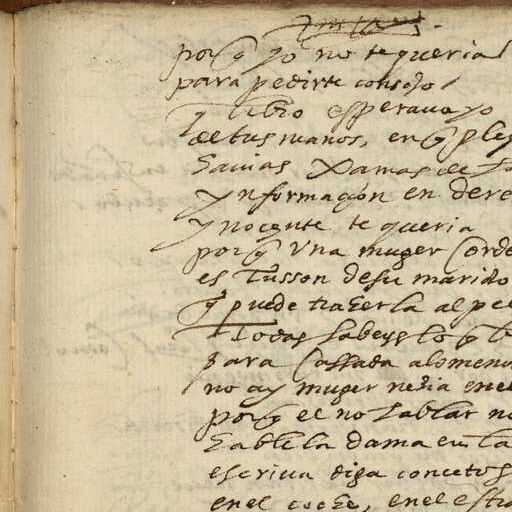 porq̃ yo no te queria
para pedirte consejo
q̃ libro esperaua yo
de tus manos, en q̃
hauias Jamas de
ynformaçion en dere
ynoçente te queria
porq̃ Vna muger Corde
es Tusson de su marido
q̃ puede traherla al pe
Todas sabeys lo q̃
para Cassada alomeno
no ay muger neçia en el
porq̃ el no hablar no
hable la dama en la
escriua diga concetos
en el coche, en el estra